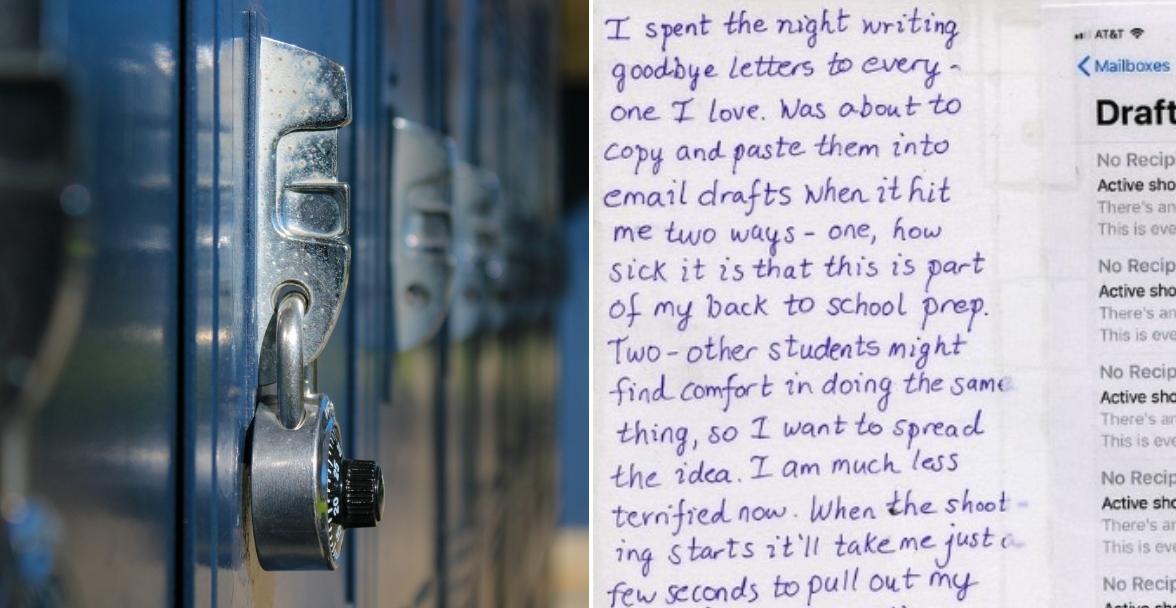 I spent the night writing
goodbye letters to every-
one I love. Was about to
copy and paste them into
email drafts when it hit
me two ways - one, how
sick it is that this is part
of my back to school prep.
Two - other students might
find comfort in doing the same
thing, so I want to spread
the idea. I am much less
terrified now. When the shoot-
ing starts it'll take me just a
few seconds to pull out my
AT&T
Mailboxes
Draft
No Recip
Active sho
There's an
This is eve
No Recip
Active sho
There's an
This is eve
No Recip
Active sho
There's an
This is eve
No Recip
Active sho
There's an
This is eve
No Recip
20